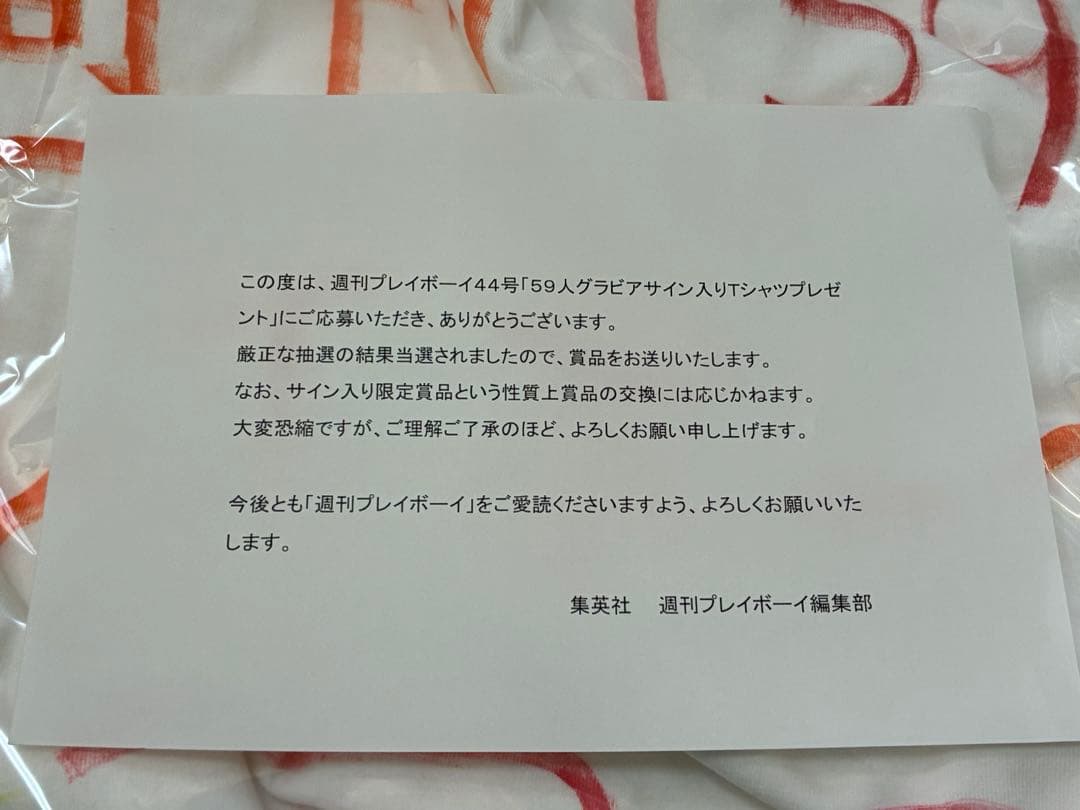 59
この度は、週刊プレイボーイ44号「59人グラビアサイン入りTシャツプレゼ
ント」にご応募いただき、ありがとうございます。
厳正な抽選の結果当選されましたので、賞品をお送りいたします。
なお、サイン入り限定賞品という性質上賞品の交換には応じかねます。
大変恐縮ですが、ご理解ご了承のほど、よろしくお願い申し上げます。
今後とも「週刊プレイボーイ」をご愛読くださいますよう、よろしくお願いいた
します。
集英社　週刊プレイボーイ編集部